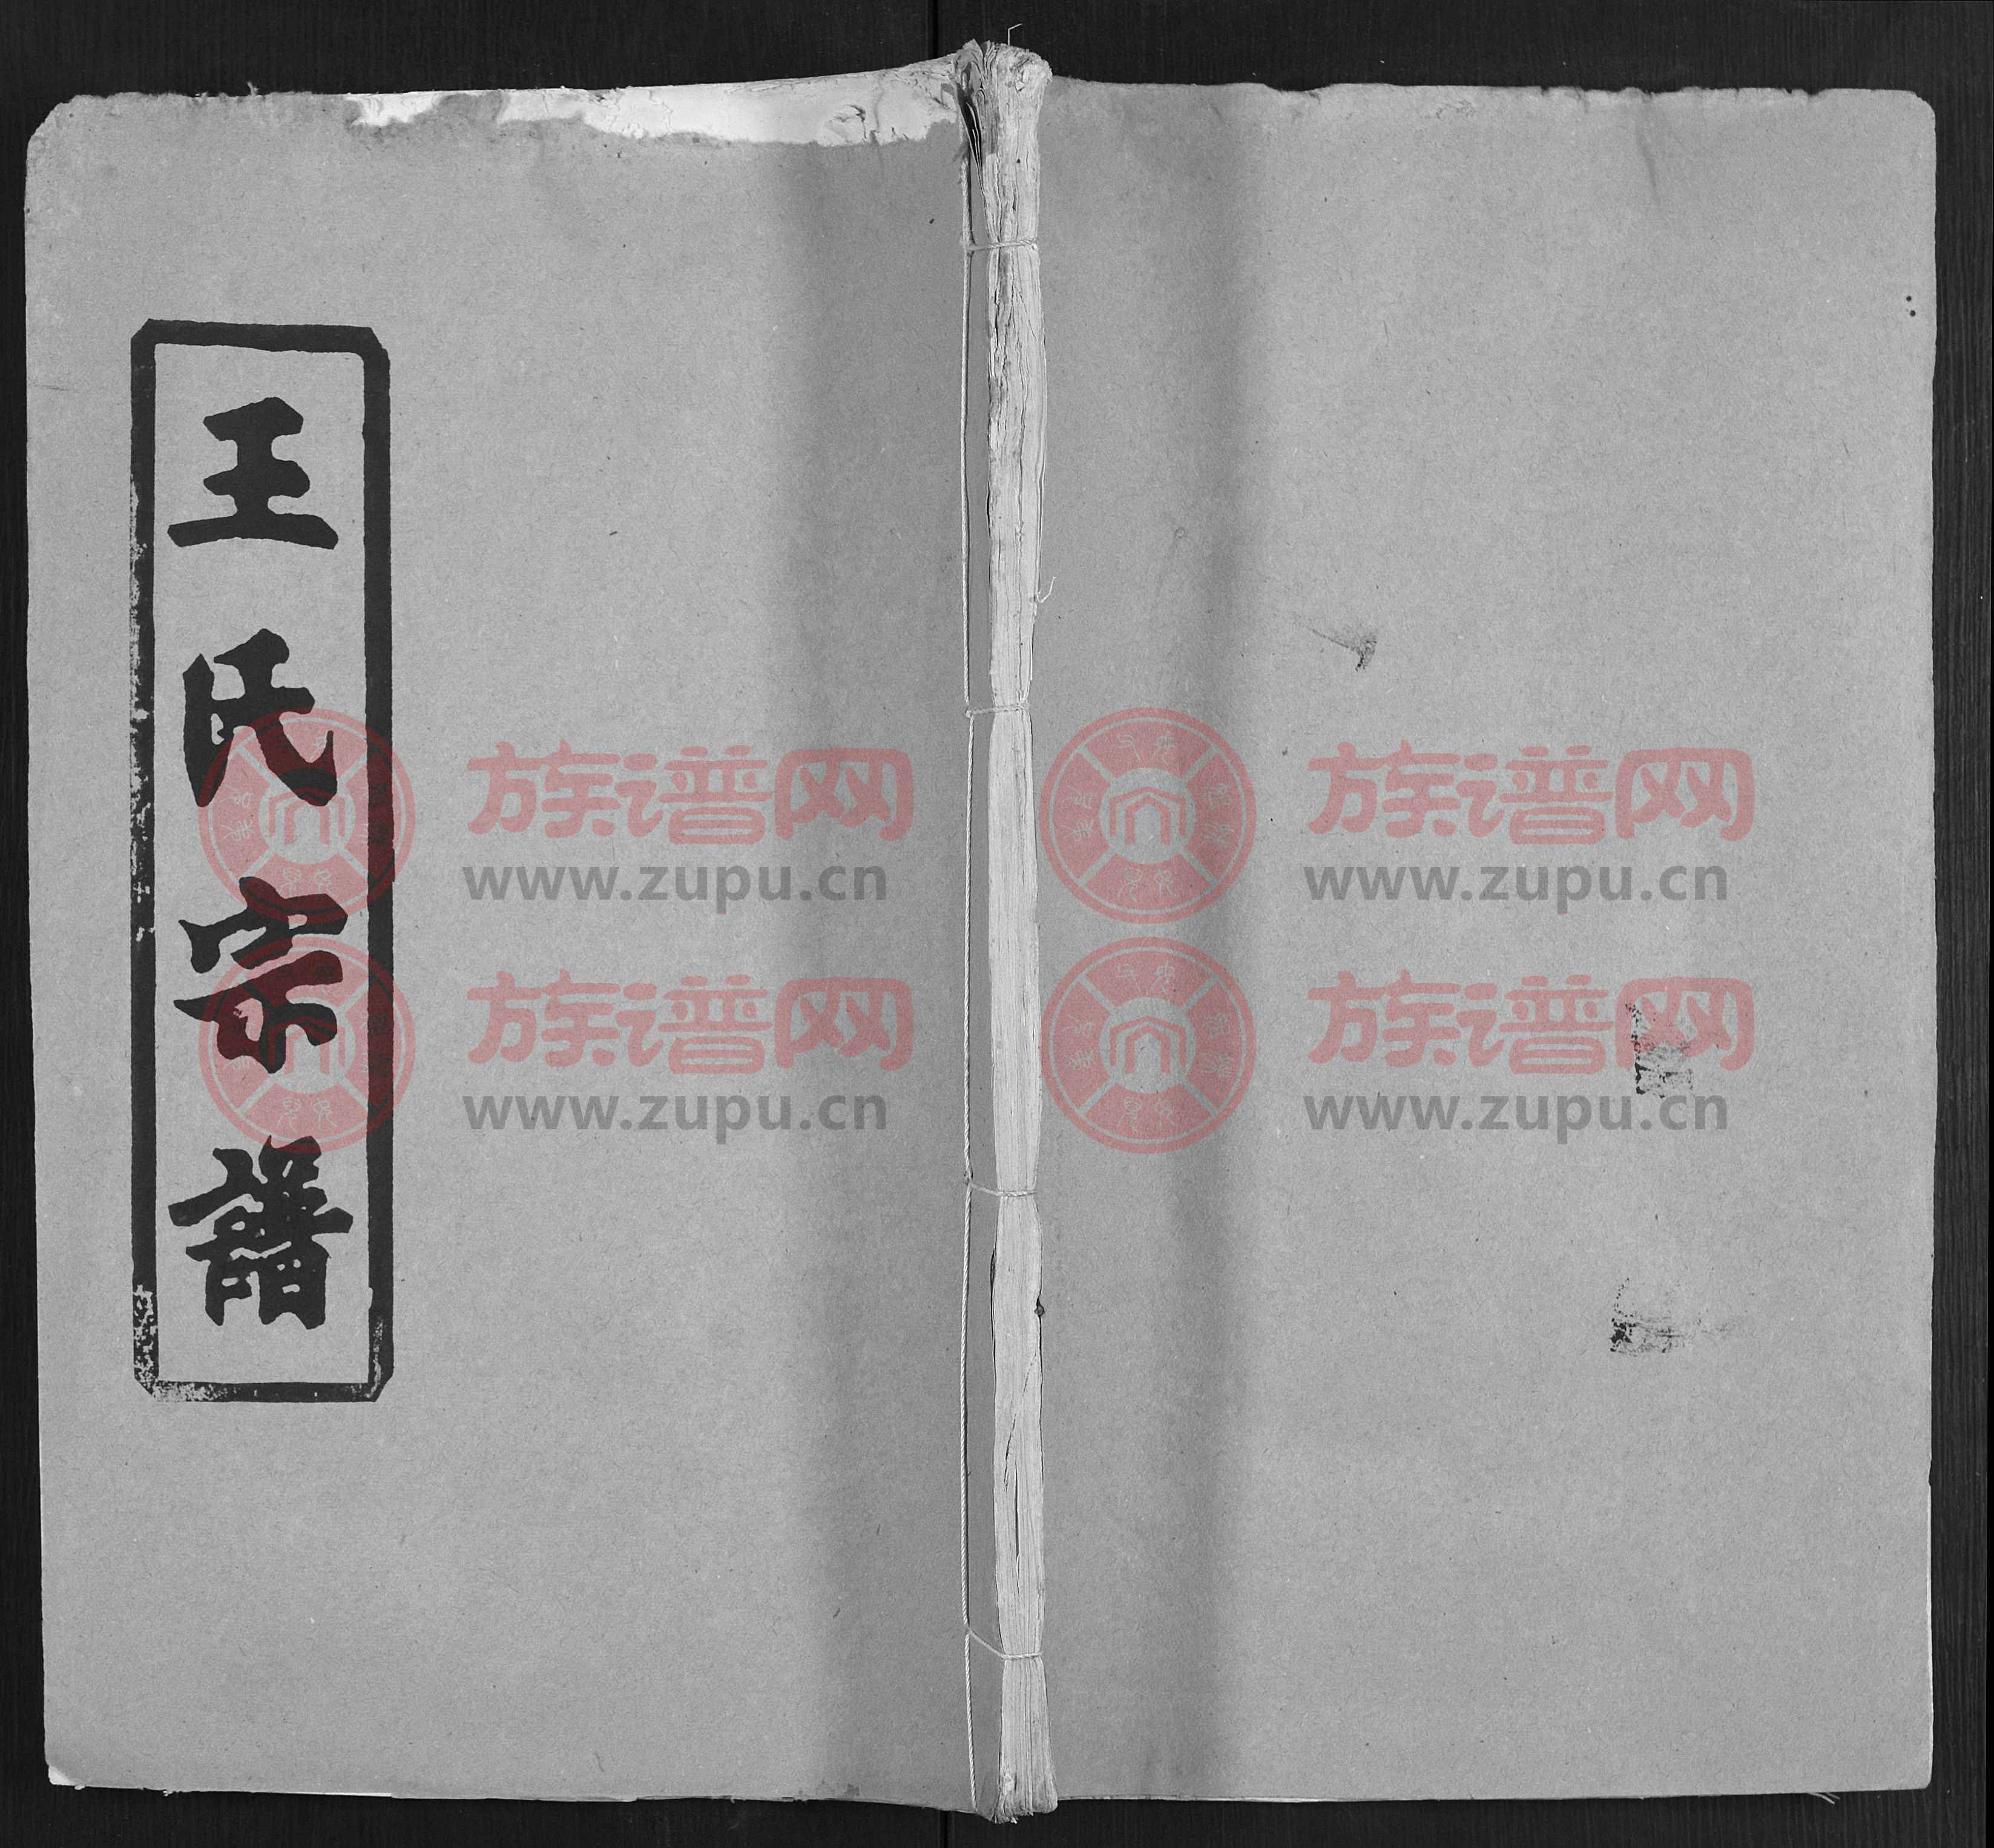 王氏宗譜
族谱网
www.zupu.cn
族谱网
www.zupu.cn
族谱网
www.zupu.cn
族谱网
www.zupu.cn